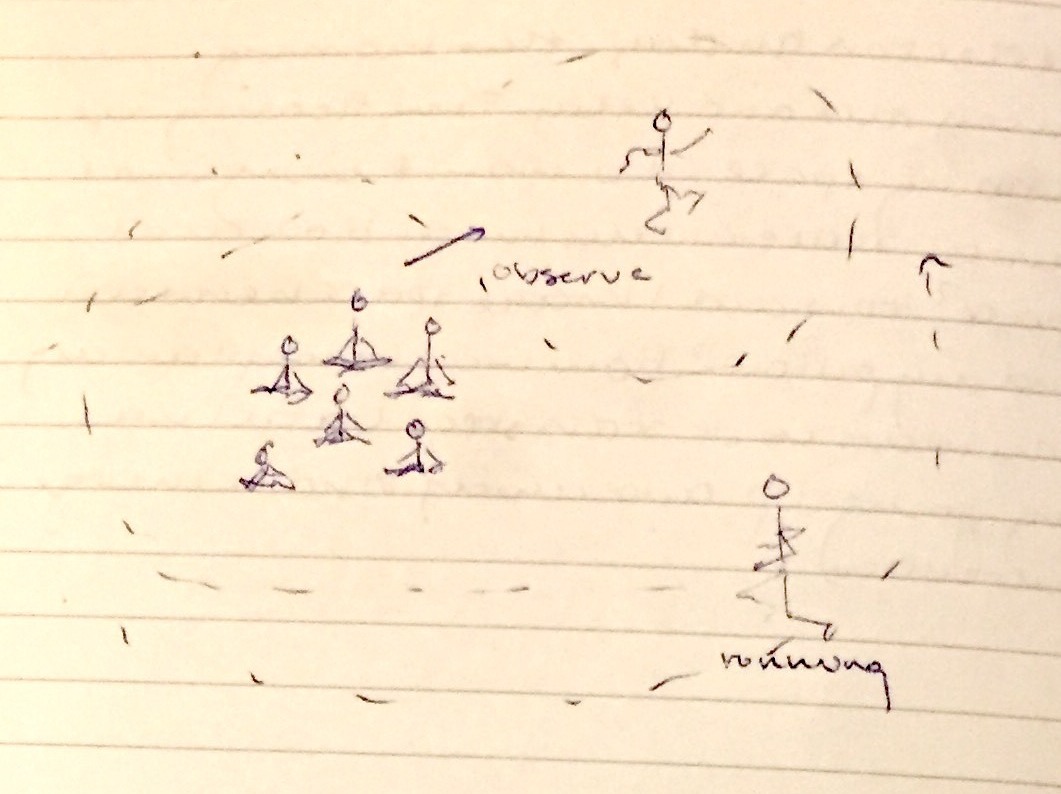 observe
running